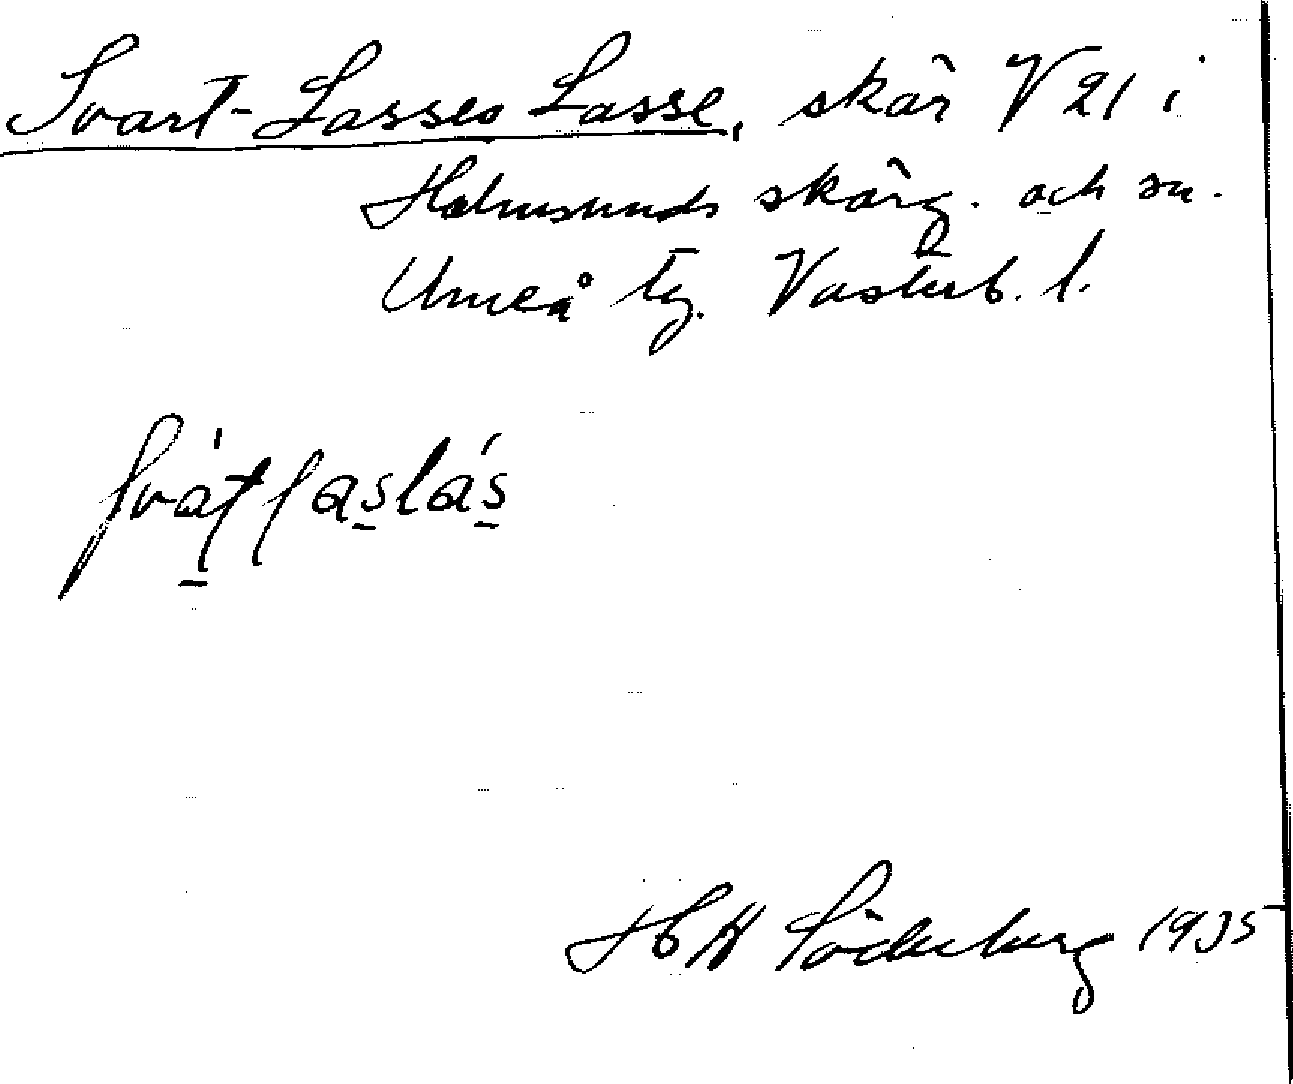 Svart-Lasses Lasse, skär V 21 i
Holmsunds skärg. och sn.
Umeå tg. Västerb. l.
H Söderberg 1935